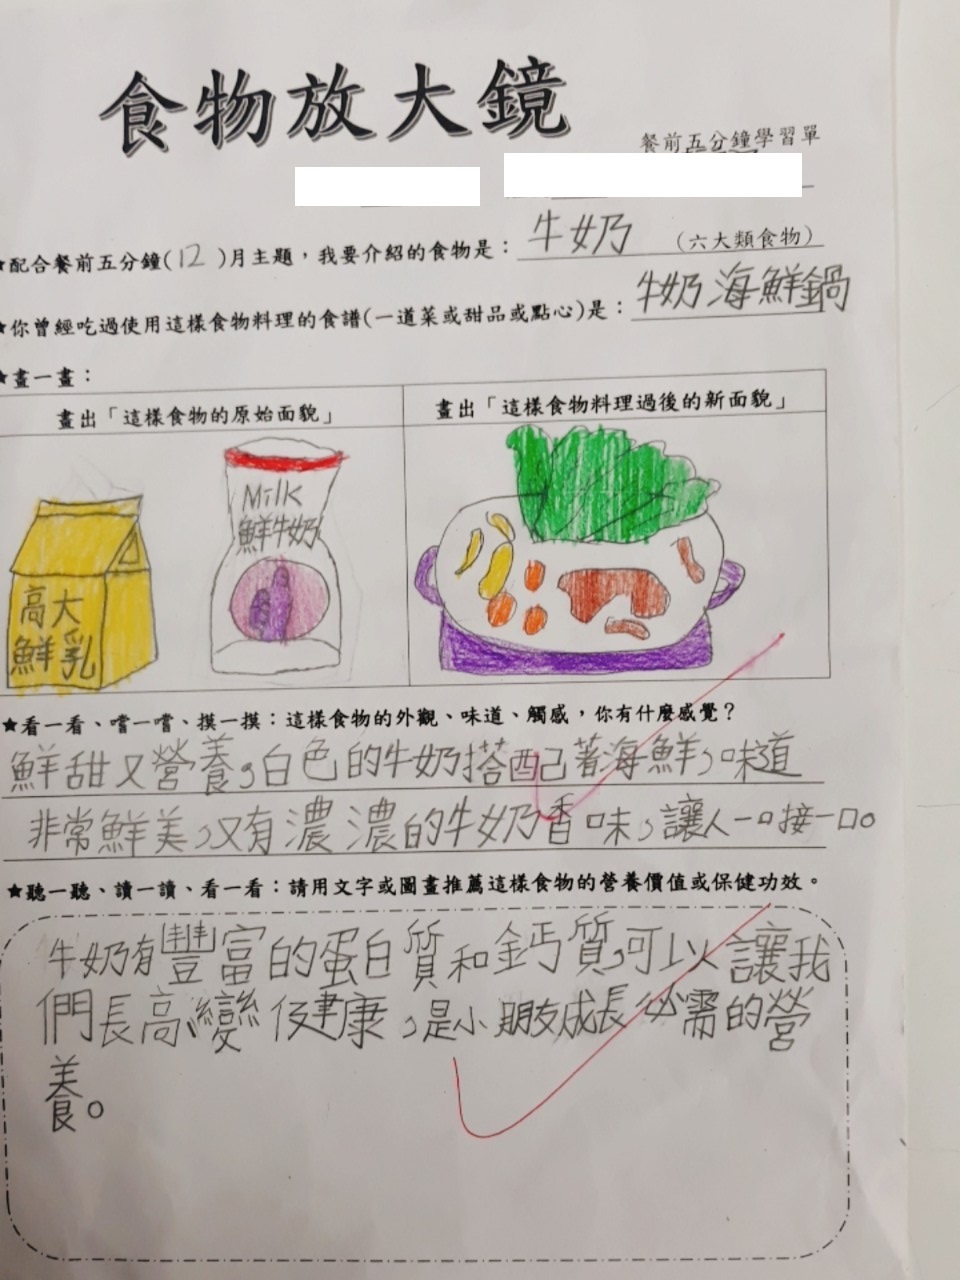 食物放大鏡
餐前五分鐘學習單
★配合餐前五分鐘(12)月主題，我要介紹的食物是：牛奶（六大類食物）
★你曾經吃過使用這樣食物料理的食譜(一道菜或甜品或點心)是：牛奶海鮮鍋
★畫一畫：
畫出「這樣食物的原始面貌」
畫出「這樣食物料理過後的新面貌」
Milk
鮮牛奶
高大
鮮乳
★看一看、嚐一嚐、摸一摸：這樣食物的外觀、味道、觸感，你有什麼感覺？
鮮甜又營養，白色的牛奶搭配著海鮮，味道
非常鮮美，又有濃濃的牛奶香味，讓人一口接一口。
★聽一聽、讀一讀、看一看：請用文字或圖畫推薦這樣食物的營養價值或保健功效。
牛奶有豐富的蛋白質和鈣質，可以讓我
們長高、變健康，是小朋友成長必需的營
養。